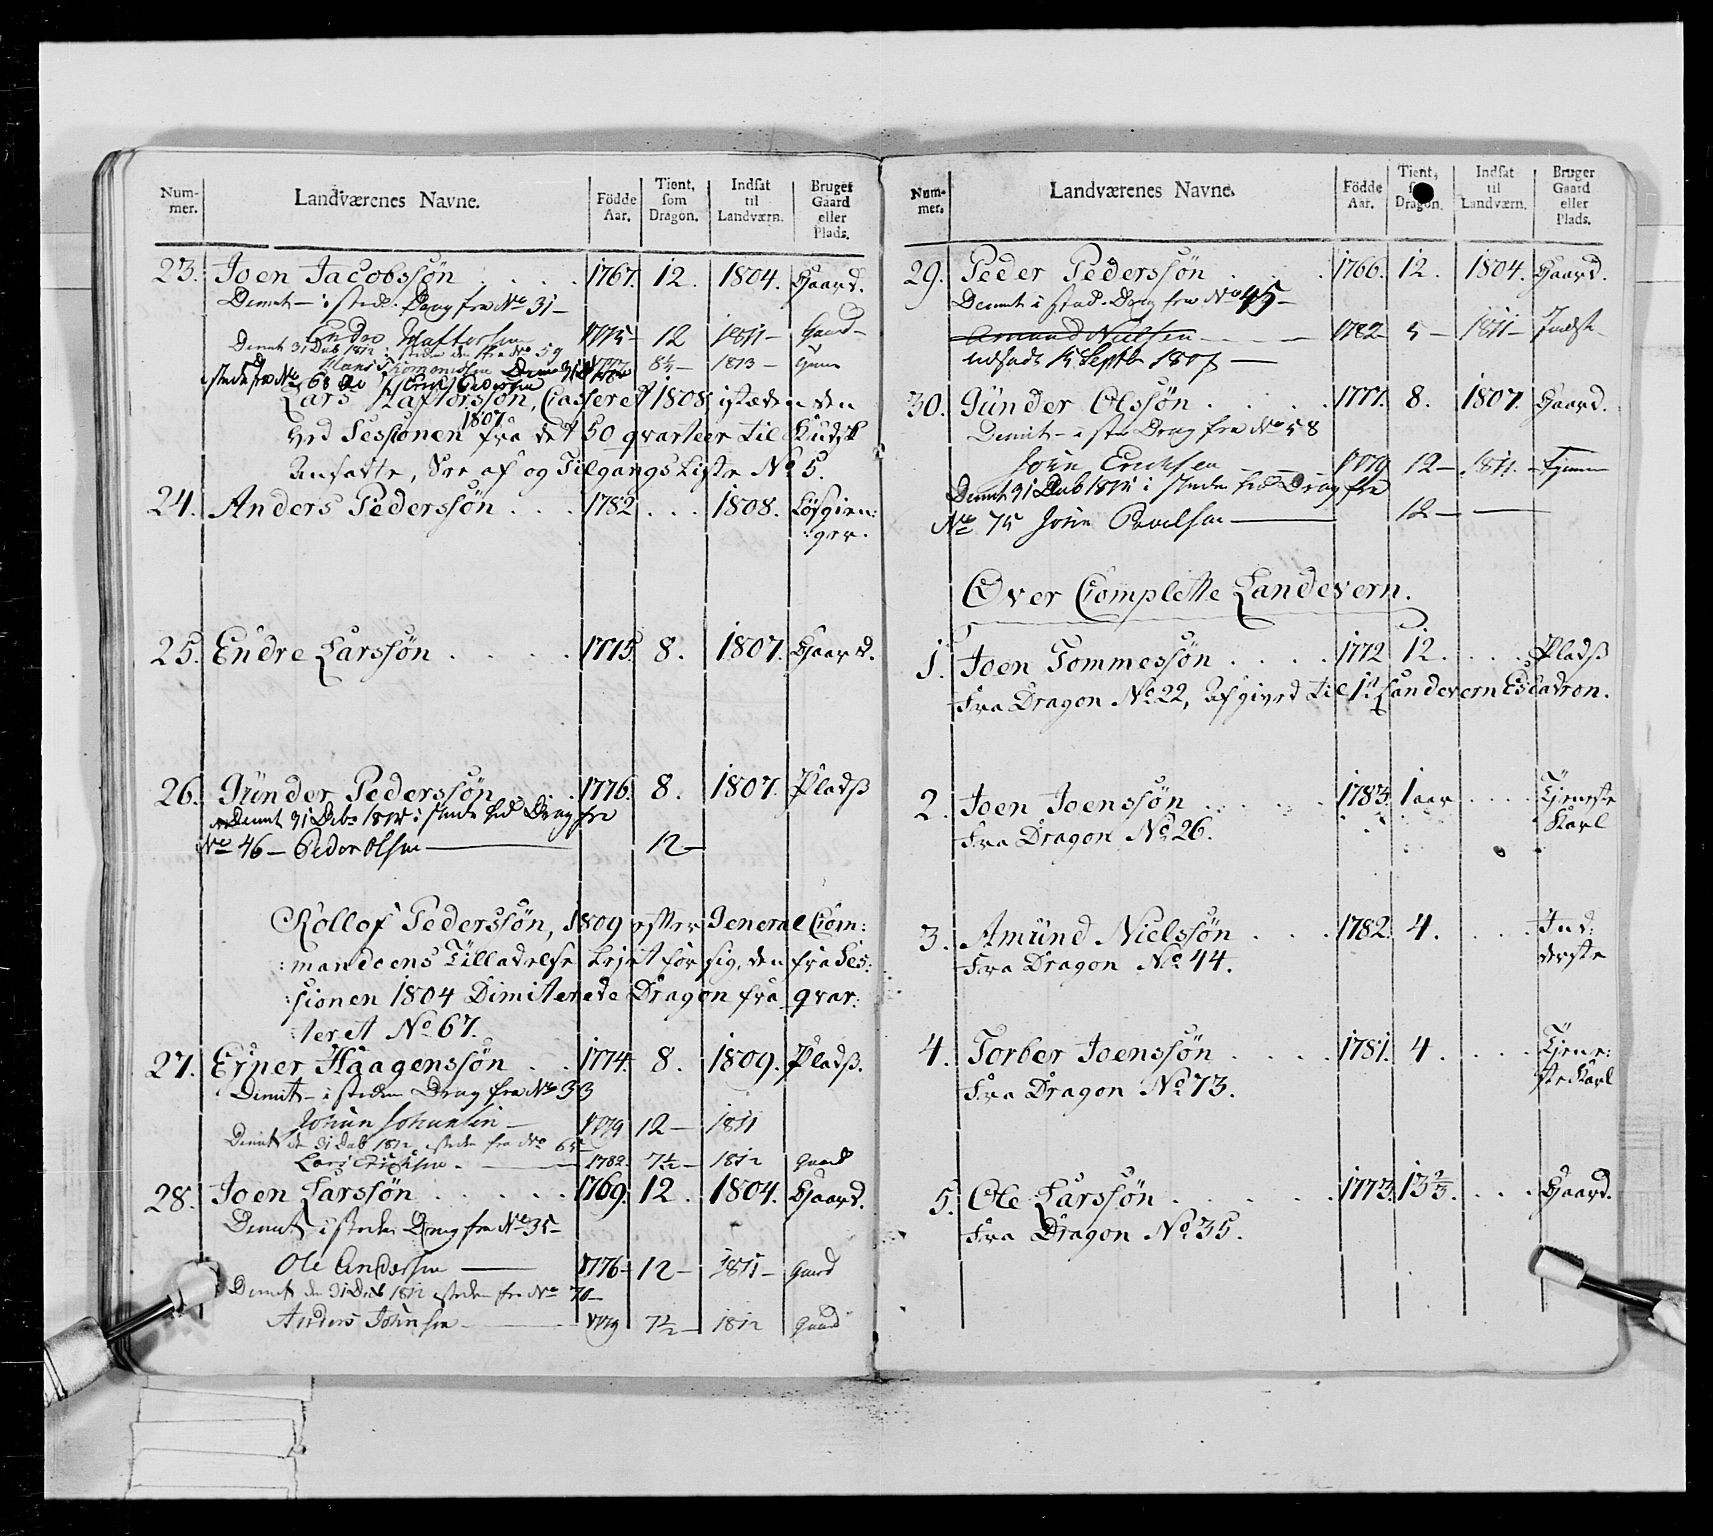 Num-mer. Landværenes Navne. Födde Aar. Tient, som Dragon. Indsat til Landværn. Bruger Gaard eller Plads.
23. Joen Jacobssön . . . . 1767. 12. 1804. Gaard.
Demit – i stede. Drag fra No 31 –
Endre Haftorsen 1775 – 12 1811 – Gaard –
Demit 31 Deb 1812 i steden fra No 59
Hans Thommesen 8½ – 1813
Lars Haftorssön, Casseret 1808 istæden den
ved Sessionen 1807 fra det 50 qvarteer til Kudsk
Ansatte, See af og Tilgangs Liste No 5.
24. Anders Pederssön . . . 1782 . . . 1808. Lösgien:
:ger.
25. Endre Larssön . . . . 1775. 8. 1807. Gaard.
26. Günder Pederssön . . 1776. 8. 1807. Pladß
Demit 31 Debr 1812 i stede fra Drag fra
No 46 – Peder Olsen — 12 –
Rollof Pederssön, 1809 efter General Com:
:mandoens Tilladelse Lejet for sig, den fra Ses:
:sionen 1804 Dimiterede Dragon fra qvar:
:teret No 67.
27. Ejner Haagenssön . . 1774. 8. 1809. Pladß.
Demit – i steden Drag fra No 33
Johan Johansen – 1779 12 – 1811
Demit den 31 Deb 1812 i steden fra No 65
Lars Erichsen – 1782. 7½ – 1812 Gaard
28. Joen Larssön . . . . . 1769. 12. 1804. Gaard.
Demit i steden Drag fra No 35 –
Ole Andersen — 1776 – 12 – 1811 – Gaard
Demit den 31 Deb 1812 i steden fra No 70 –
Anders Johnsen — 1779 7½ – 1812 Gaard
Num-mer. Landværenes Navne. Födde Aar. Tient, som Dragon. Indsat til Landværn. Bruger Gaard eller Plads.
29. Peder Pederssön . . . . 1766. 12. 1804. Gaard.
Demit i Sted. Drag fra No 45 –
Amund Nielsen — 1782 – 5 – 1811 – Indst
udsadt 15 Septb 1807 —
30. Günder Olssön . . . . . 1777. 8. 1807. Gaard.
Demit – i sted Drag fra No 58
John Erichsen 1779 12 – 1811 –
Demit 31 Deb 1812 i steden fra Drag fra
No 75 John Povelsen — 12 –
Over Complette Landevern.
1. Joen Tommessön . . . . 1772 12. . . . . Pladß
Fra Dragon No 22, Afgived til 1te Landevern Escadron.
2. Joen Joenssön . . . . . 1783. 1 aar . . . . Tjeneste
Karl
Fra Dragon No 26.
3. Amünd Nielssön . . . . 1782. 4. . . . . Ind:
derste
Fra Dragon No 44.
4. Torber Joenssön . . . . 1781. 4. . . . . Tjene:
steKarl
Fra Dragon No 73.
5. Ole Larssön . . . . . 1773. 13⅔. . . . Gaard.
Fra Dragon No 35.